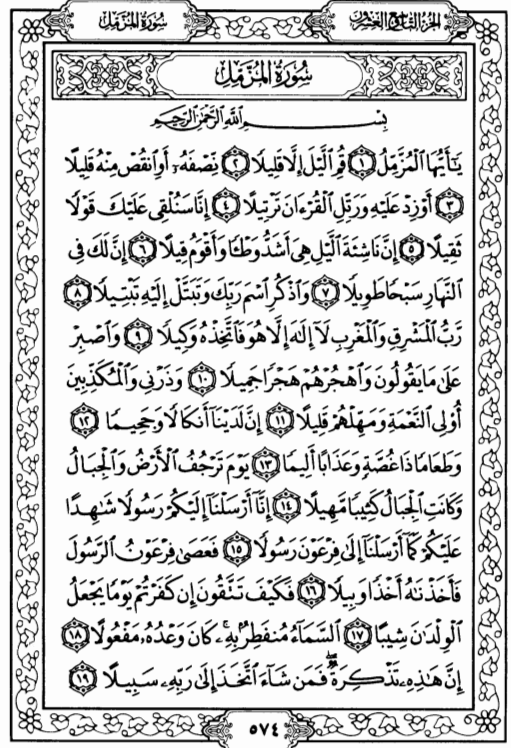 سُورَةُ المُزَّمِّل
الجُزْءُ التَّاسِعُ وَالعِشْرُونَ
سُورَةُ المُزَّمِّل
بِسْمِ ٱللَّهِ ٱلرَّحْمَٰنِ ٱلرَّحِيمِ
يَٰٓأَيُّهَا ٱلْمُزَّمِّلُ ١ قُمِ ٱلَّيْلَ إِلَّا قَلِيلًا ٢ نِّصْفَهُۥٓ أَوِ ٱنقُصْ مِنْهُ قَلِيلًا
٣ أَوْ زِدْ عَلَيْهِ وَرَتِّلِ ٱلْقُرْءَانَ تَرْتِيلًا ٤ إِنَّا سَنُلْقِى عَلَيْكَ قَوْلًا
ثَقِيلًا ٥ إِنَّ نَاشِئَةَ ٱلَّيْلِ هِىَ أَشَدُّ وَطْـًٔا وَأَقْوَمُ قِيلًا ٦ إِنَّ لَكَ فِى
ٱلنَّهَارِ سَبْحًا طَوِيلًا ٧ وَٱذْكُرِ ٱسْمَ رَبِّكَ وَتَبَتَّلْ إِلَيْهِ تَبْتِيلًا ٨
رَّبُّ ٱلْمَشْرِقِ وَٱلْمَغْرِبِ لَآ إِلَٰهَ إِلَّا هُوَ فَٱتَّخِذْهُ وَكِيلًا ٩ وَٱصْبِرْ
عَلَىٰ مَا يَقُولُونَ وَٱهْجُرْهُمْ هَجْرًا جَمِيلًا ١٠ وَذَرْنِى وَٱلْمُكَذِّبِينَ
أُو۟لِى ٱلنَّعْمَةِ وَمَهِّلْهُمْ قَلِيلًا ١١ إِنَّ لَدَيْنَآ أَنكَالًا وَجَحِيمًا ١٢
وَطَعَامًا ذَا غُصَّةٍ وَعَذَابًا أَلِيمًا ١٣ يَوْمَ تَرْجُفُ ٱلْأَرْضُ وَٱلْجِبَالُ
وَكَانَتِ ٱلْجِبَالُ كَثِيبًا مَّهِيلًا ١٤ إِنَّآ أَرْسَلْنَآ إِلَيْكُمْ رَسُولًا شَٰهِدًا
عَلَيْكُمْ كَمَآ أَرْسَلْنَآ إِلَىٰ فِرْعَوْنَ رَسُولًا ١٥ فَعَصَىٰ فِرْعَوْنُ ٱلرَّسُولَ
فَأَخَذْنَٰهُ أَخْذًا وَبِيلًا ١٦ فَكَيْفَ تَتَّقُونَ إِن كَفَرْتُمْ يَوْمًا يَجْعَلُ
ٱلْوِلْدَٰنَ شِيبًا ١٧ ٱلسَّمَآءُ مُنفَطِرٌۢ بِهِۦ ۚ كَانَ وَعْدُهُۥ مَفْعُولًا ١٨
إِنَّ هَٰذِهِۦ تَذْكِرَةٌ ۖ فَمَن شَآءَ ٱتَّخَذَ إِلَىٰ رَبِّهِۦ سَبِيلًا ١٩
٥٧٤